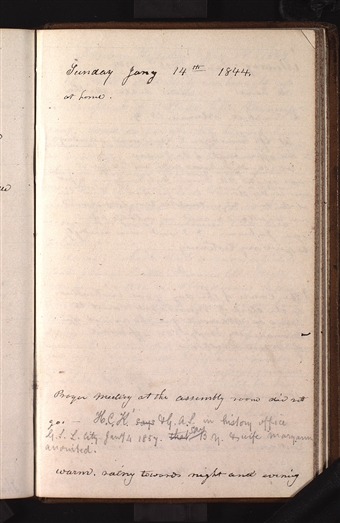 Sunday Jany 14th 1844.
at home.
Prayer meeting at the assembly room did not
go. — H.C.K. says to G. A. S. in history office
G.S.L. City. Jany 4 1857. that B.Y. & wife Maryann
anointed.
warm. rainy towards night and evening